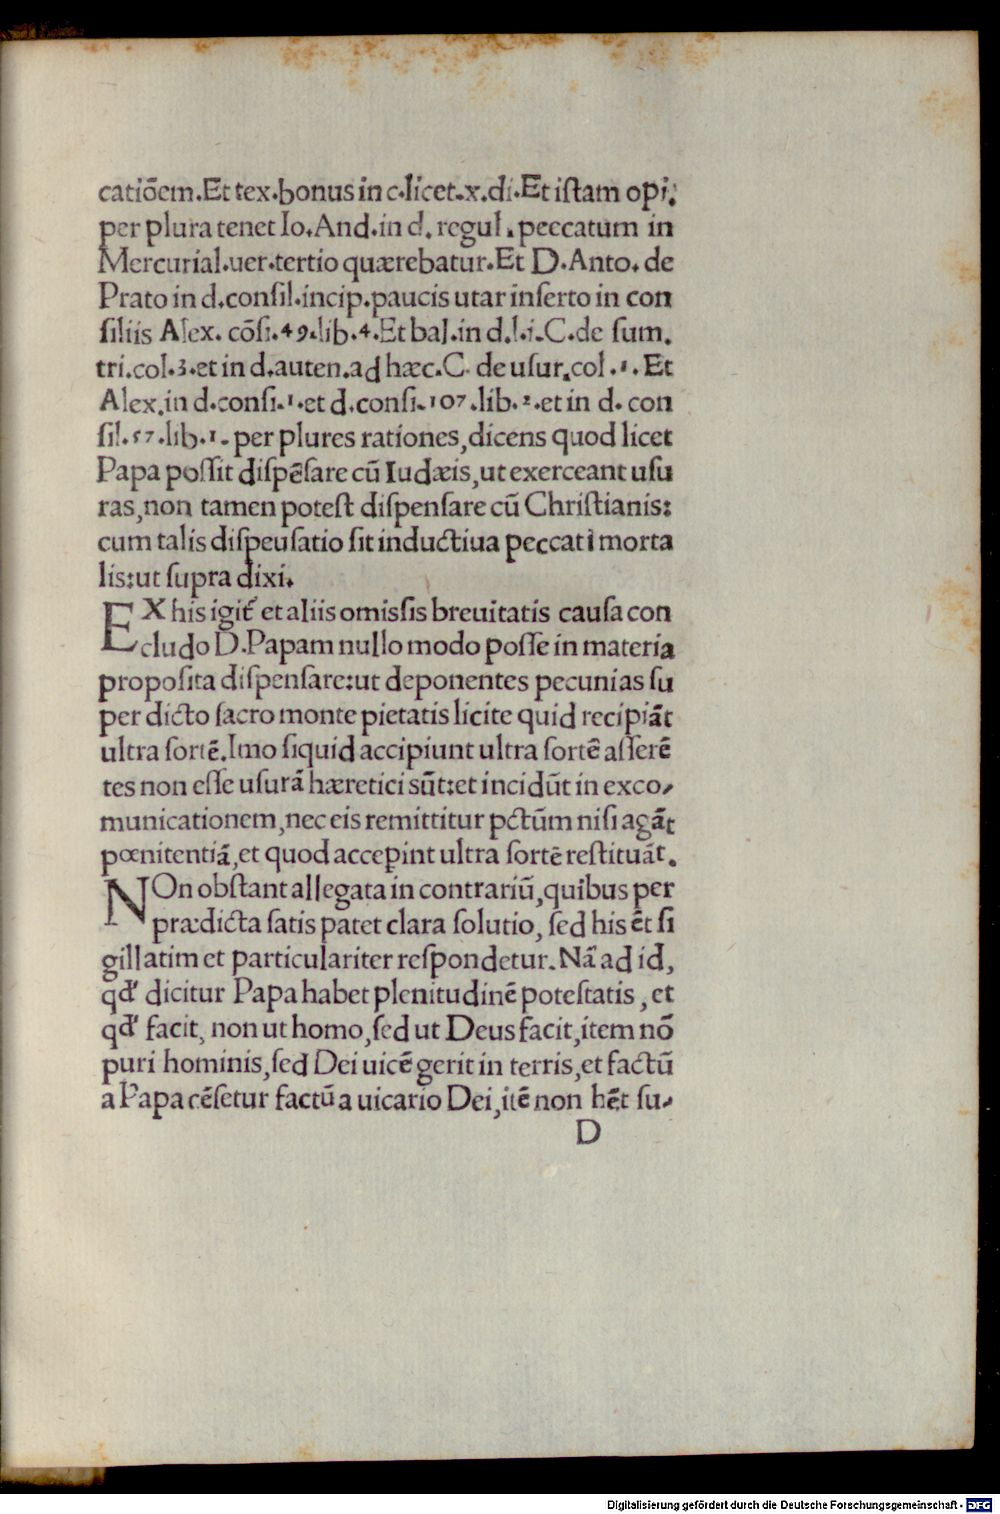 catiõem.Et tex.bonus in c.licet.x.di.Et iſtam opi:
per plura tenet Io.And.in d.regul.peccatum in
Mercurial.uer.tertio quærebatur.Et D.Anto.de
Prato in d.conſil.incip.paucis utar inſerto in con
ſiliis Alex. cõſi.49.lib.4.Et bal.in d.l.i.C.de ſum.
tri.col.3.et in d.auten.ad hæc.C. de uſur.col.1.Et
Alex.in d.conſi.1.et d.conſi.107.lib.2.et in d.con
ſil.57.lib.1.per plures rationes,dicens quod licet
Papa poſſit diſpẽſare cũ Iudæis,ut exerceant uſu
ras,non tamen poteſt diſpenſare cũ Chriſtianis:
cum talis diſpeuſatio ſit inductiua peccati morta
lis:ut ſupra dixi.
EX his igit̃ et aliis omiſſis breuitatis cauſa con
cludo D.Papam nullo modo poſſe in materia
propoſita diſpenſare:ut deponentes pecunias ſu
per dicto ſacro monte pietatis licite quid recipiãt
ultra ſortẽ.Imo ſiquid accipiunt ultra ſortẽ aſſerẽ
tes non eſſe uſurã hæretici sũt:et incidũt in exco-
municationem,nec eis remittitur pctũm niſi agãt
pœnitentiã,et quod accepint ultra ſortẽ reſtituãt.
NOn obſtant allegata in contrariũ,quibus per
prædicta ſatis patet clara ſolutio, ſed his ẽt ſi
gillatim et particulariter reſpondetur.Nã ad id,
qd' dicitur Papa habet plenitudinẽ poteſtatis, et
qd' facit, non ut homo,ſed ut Deus facit,item nõ
puri hominis,ſed Dei uicẽ gerit in terris,et factũ
a Papa cẽſetur factũ a uicario Dei,itẽ non hẽt ſu-
D
Digitalisierung gefördert durch die Deutsche Forschungsgemeinschaft - DFG